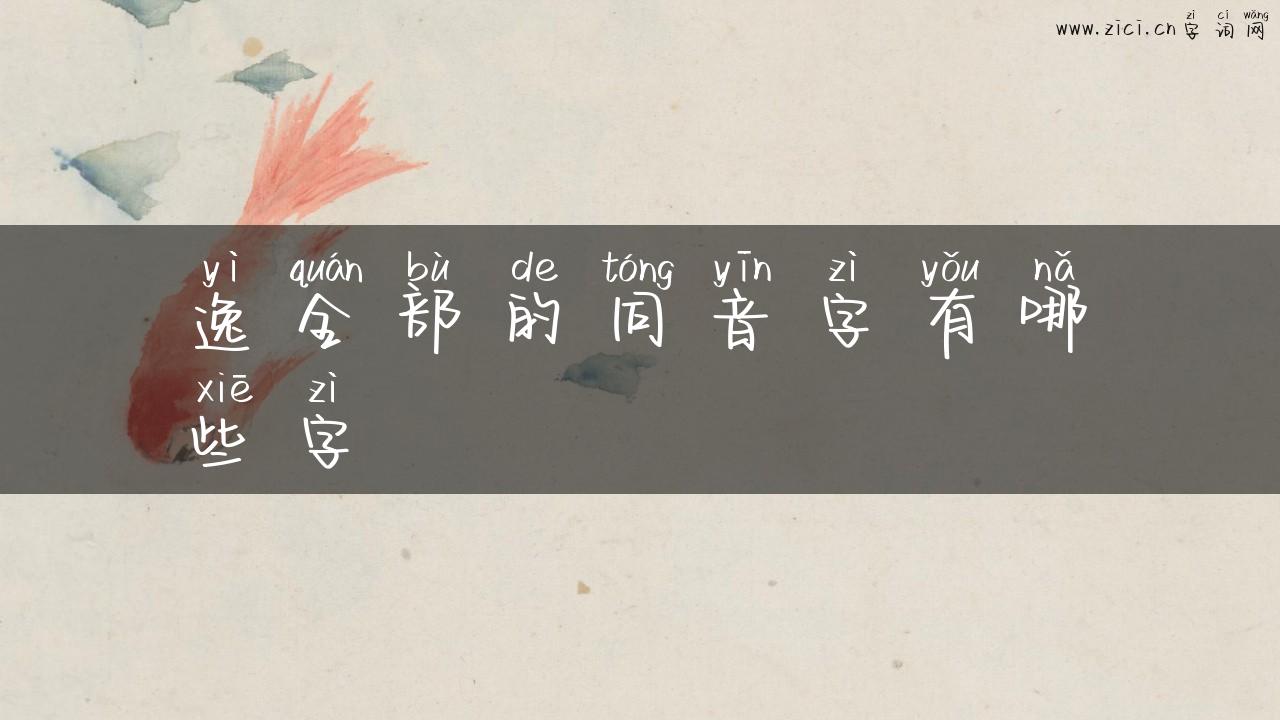 zì cí wǎng
www.zici.cn 字词网
yì quán bù de tóng yīn zì yǒu nǎ
逸全部的同音字有哪
xiē zì
些字